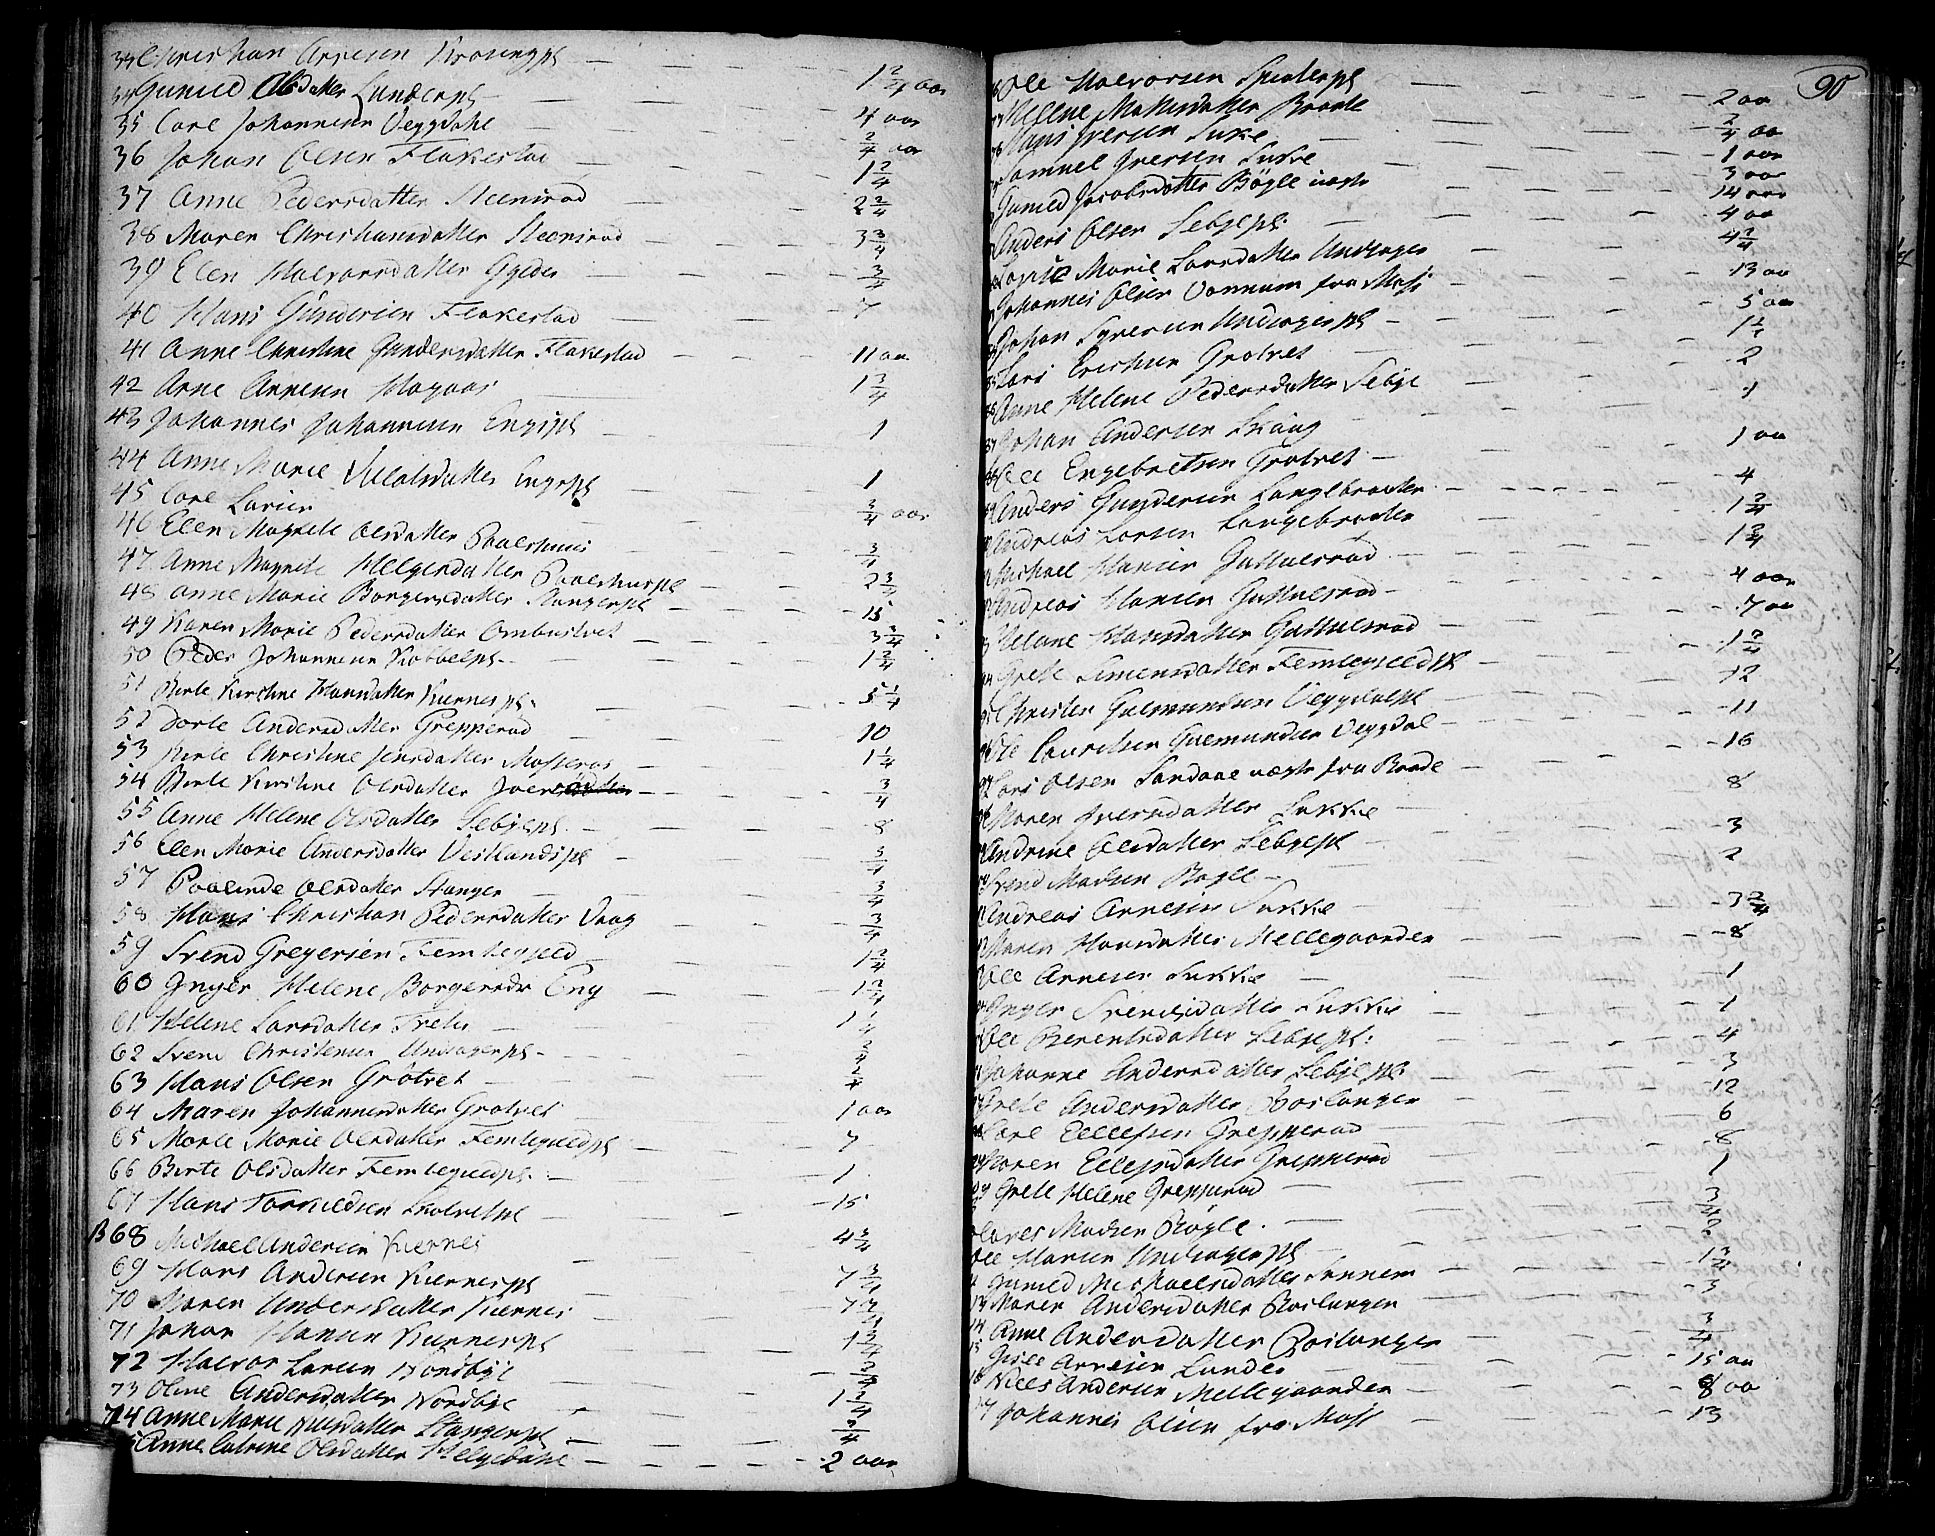 33 Christian Arnesen Krosengpl — 1 2/4 aar
34 Gunild Olsdatter Lunderpl — 4 aar
35 Carl Johannesen Veggdahl — 2/4 aar
36 Johan Olsen Flakestad — 1 2/4
37 Anne Pedersdatter Steensrød — 2 2/4
38 Maren Christiansdatter Steensrød — 3 3/4
39 Elen Halvorsdatter — 3/4
40 Hans Gundersen Flakestad — 7
41 Anne Christine Gundersdatter Flakestad — 11 aar
42 Arne Arnesen Hagaas — 1 3/4
43 Johannes Johannesen Engspl — 1
44 Anne Marie Nielsdatter Engspl — 1
45 Carl Larsen — 3/4 aar
46 Elen Magrete Olsdatter Paalshuus — 3/4
47 Anne Magrete Helgesdatter Paalshuspl — 2 3/4
48 Anne Marie Borgersdatter Stangerpl — 15
49 Karen Marie Pedersdatter Ombustvet — 3 3/4
50 Peder Johannesen Kobbelpl — 1 3/4
51 Berte Kirstine Hansdatter Kiernespl — 5 1/4
52 Dorte Andersdatter Grepperød — 10
53 Berte Christine Jensdatter Mosserøs — 1 1/4
54 Berte Kirstine Olsdatter — 3/4
55 Anne Helene Olsdatter Sebyepl — 8
56 Elen Marie Andersdatter Vestlandspl — 3/4
57 Paalinde Olsdatter Stanger — 3/4
58 Hans Christian Pedersdatter Vaag — 3/4
59 Svend Gregersen Femtegield — 1 2/4
60 Inger Helene Borgersdr Eng — 1 2/4
61 Helene Larsdatter — 1 1/4
62 Svend Christensen Undragerpl — 2/4
63 Hans Olsen Grøtvet — 2/4
64 Maren Johannesdatter Grøtvet — 1 aar
65 Marte Marie Olsdatter Femtegieldpl — 7
66 Berte Olsdatter Femtegieldpl — 1
67 Hans Torkildsen — 15
68 Michael Andersen Kiernes — 4 3/4
69 Hans Andersen Kiernespl — 7 3/4
70 Maren Andersdatter Kiernes — 7 2/4
71 Johan Hansen Kiernespl — 1 2/4
72 Halvor Larsen Nordbye — 2/4
73 Oline Andersdatter Nordbye — 1 2/4
74 Anne Marie Nielsdatter Stangerpl — 3/4
Anne Catrine Olsdatter — 2 aar
90
Ole Halvorsen — 2 aa
Hellene Mathisdatter Braate — 2/4 aa
Hans Iversen Sukke — 1 aar
Samuel Iversen Sukke — 3 aar
Gunild Jacobsdatter Bøgle — 14 aar
Anders Olsen Sebyepl — 4 aa
Marie Larsdatter Undrager — 4 2/4
Johannes Olsen Vannum fra Moss — 13 aa
Johan Syversen Undragerpl — 5 aa
Lars Erichsen Grøtvet — 1 1/4
Anne Helene Pedersdatter Sebye — 2
Johan Andersen Skaug — 1
Ole Engebretsen Grøtvet — 1 aa
Anders Gundersen Langebraaten — 4
Andreas Larsen Langebraaten — 1 2/4
Michael Hansen Guttulsrød — 1 2/4
Andreas Hansen Guttulsrød — 4 aar
Helane Hansdatter Guttulsrød — 7 aa
Grete Simensdatter Femtegieldpl — 1 2/4
Christen Gulmundsen Veggdalpl — 12
Ole Lauritsen Gulmundsen Veggdal — 11
Lars Olsen Sandane fra Raade — 16
Maren Iversdatter Sukke — 8
Andrine Olsdatter Sebyepl — 3
Svend Madsen Bøgle — 2
Andreas Arnesen Sukke — 3 2/4
Maren Hansdatter Mellegaarden — 8
Ole Arnesen Sukke — 1
Inger Svensdatter Sukke — 1
Ole Berentsdatter Sebyepl — 4
Johanne Andersdatter Sebyepl — 3
Grete Andersdatter Roslanger — 12
Carl Ellefsen Grepperød — 6
Maren Ellefsdatter Grepperød — 8
Grete Helene Grepperød — 1
Madsen Bøgle — 3/4
Ole Hansen Undragerpl — 2
Gunild Michaelsdatter Sannem — 1 3/4
Maren Andersdatter Roslanger — 3
Anne Andersdatter Roslanger — 3/4
Arnesen Lunder — 15 aa
Niels Andersen Mellegaarden — 8 aa
Johannes Olsen fra Moss — 13